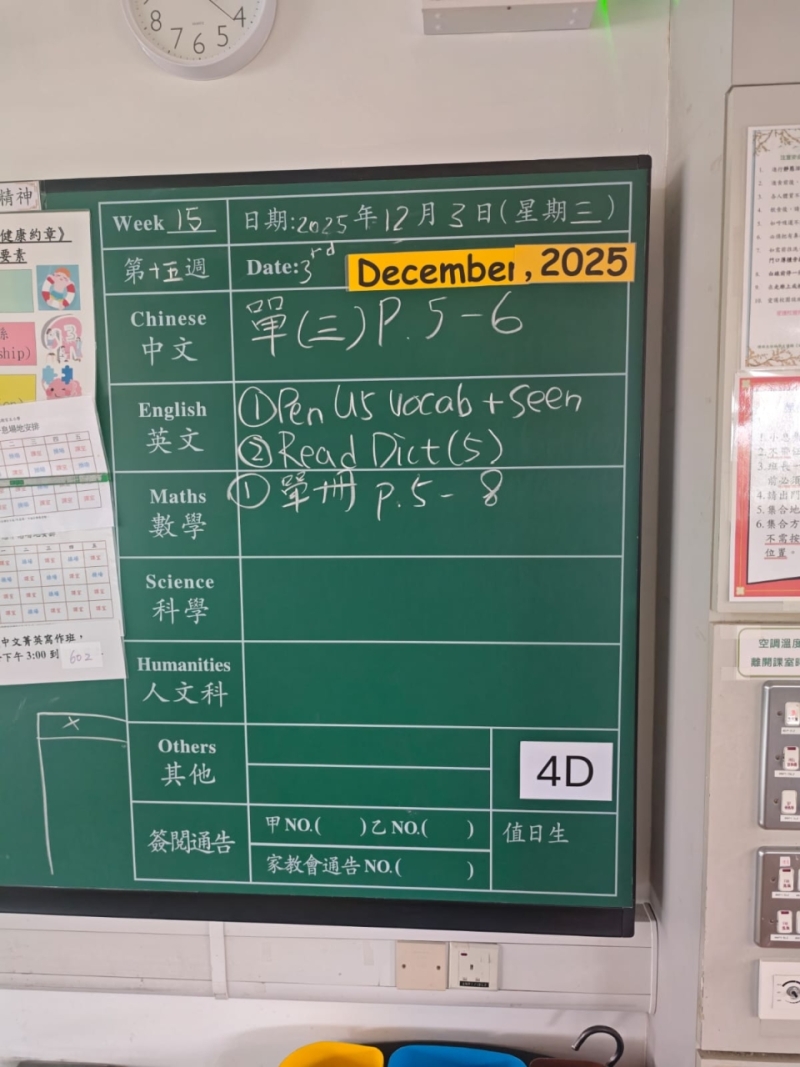 8 7 6 5 4
精神
Week 15 日期:2025年12月3日(星期三)
第十五週 Date:3rd December, 2025
Chinese 中文 單(三)P.5-6
English 英文 ①Pen U5 vocab + seen
②Read Dict(5)
Maths 數學 ①單冊 p.5-8
Science 科學
Humanities 人文科
Others 其他
4D
簽閱通告 甲NO.( )乙NO.( ) 值日生
家教會通告NO.( )
健康約章》
要素
ship)
中文菁英寫作班，
下午3:00到 602
x
空調溫度
離開課室時
不需按
位置。